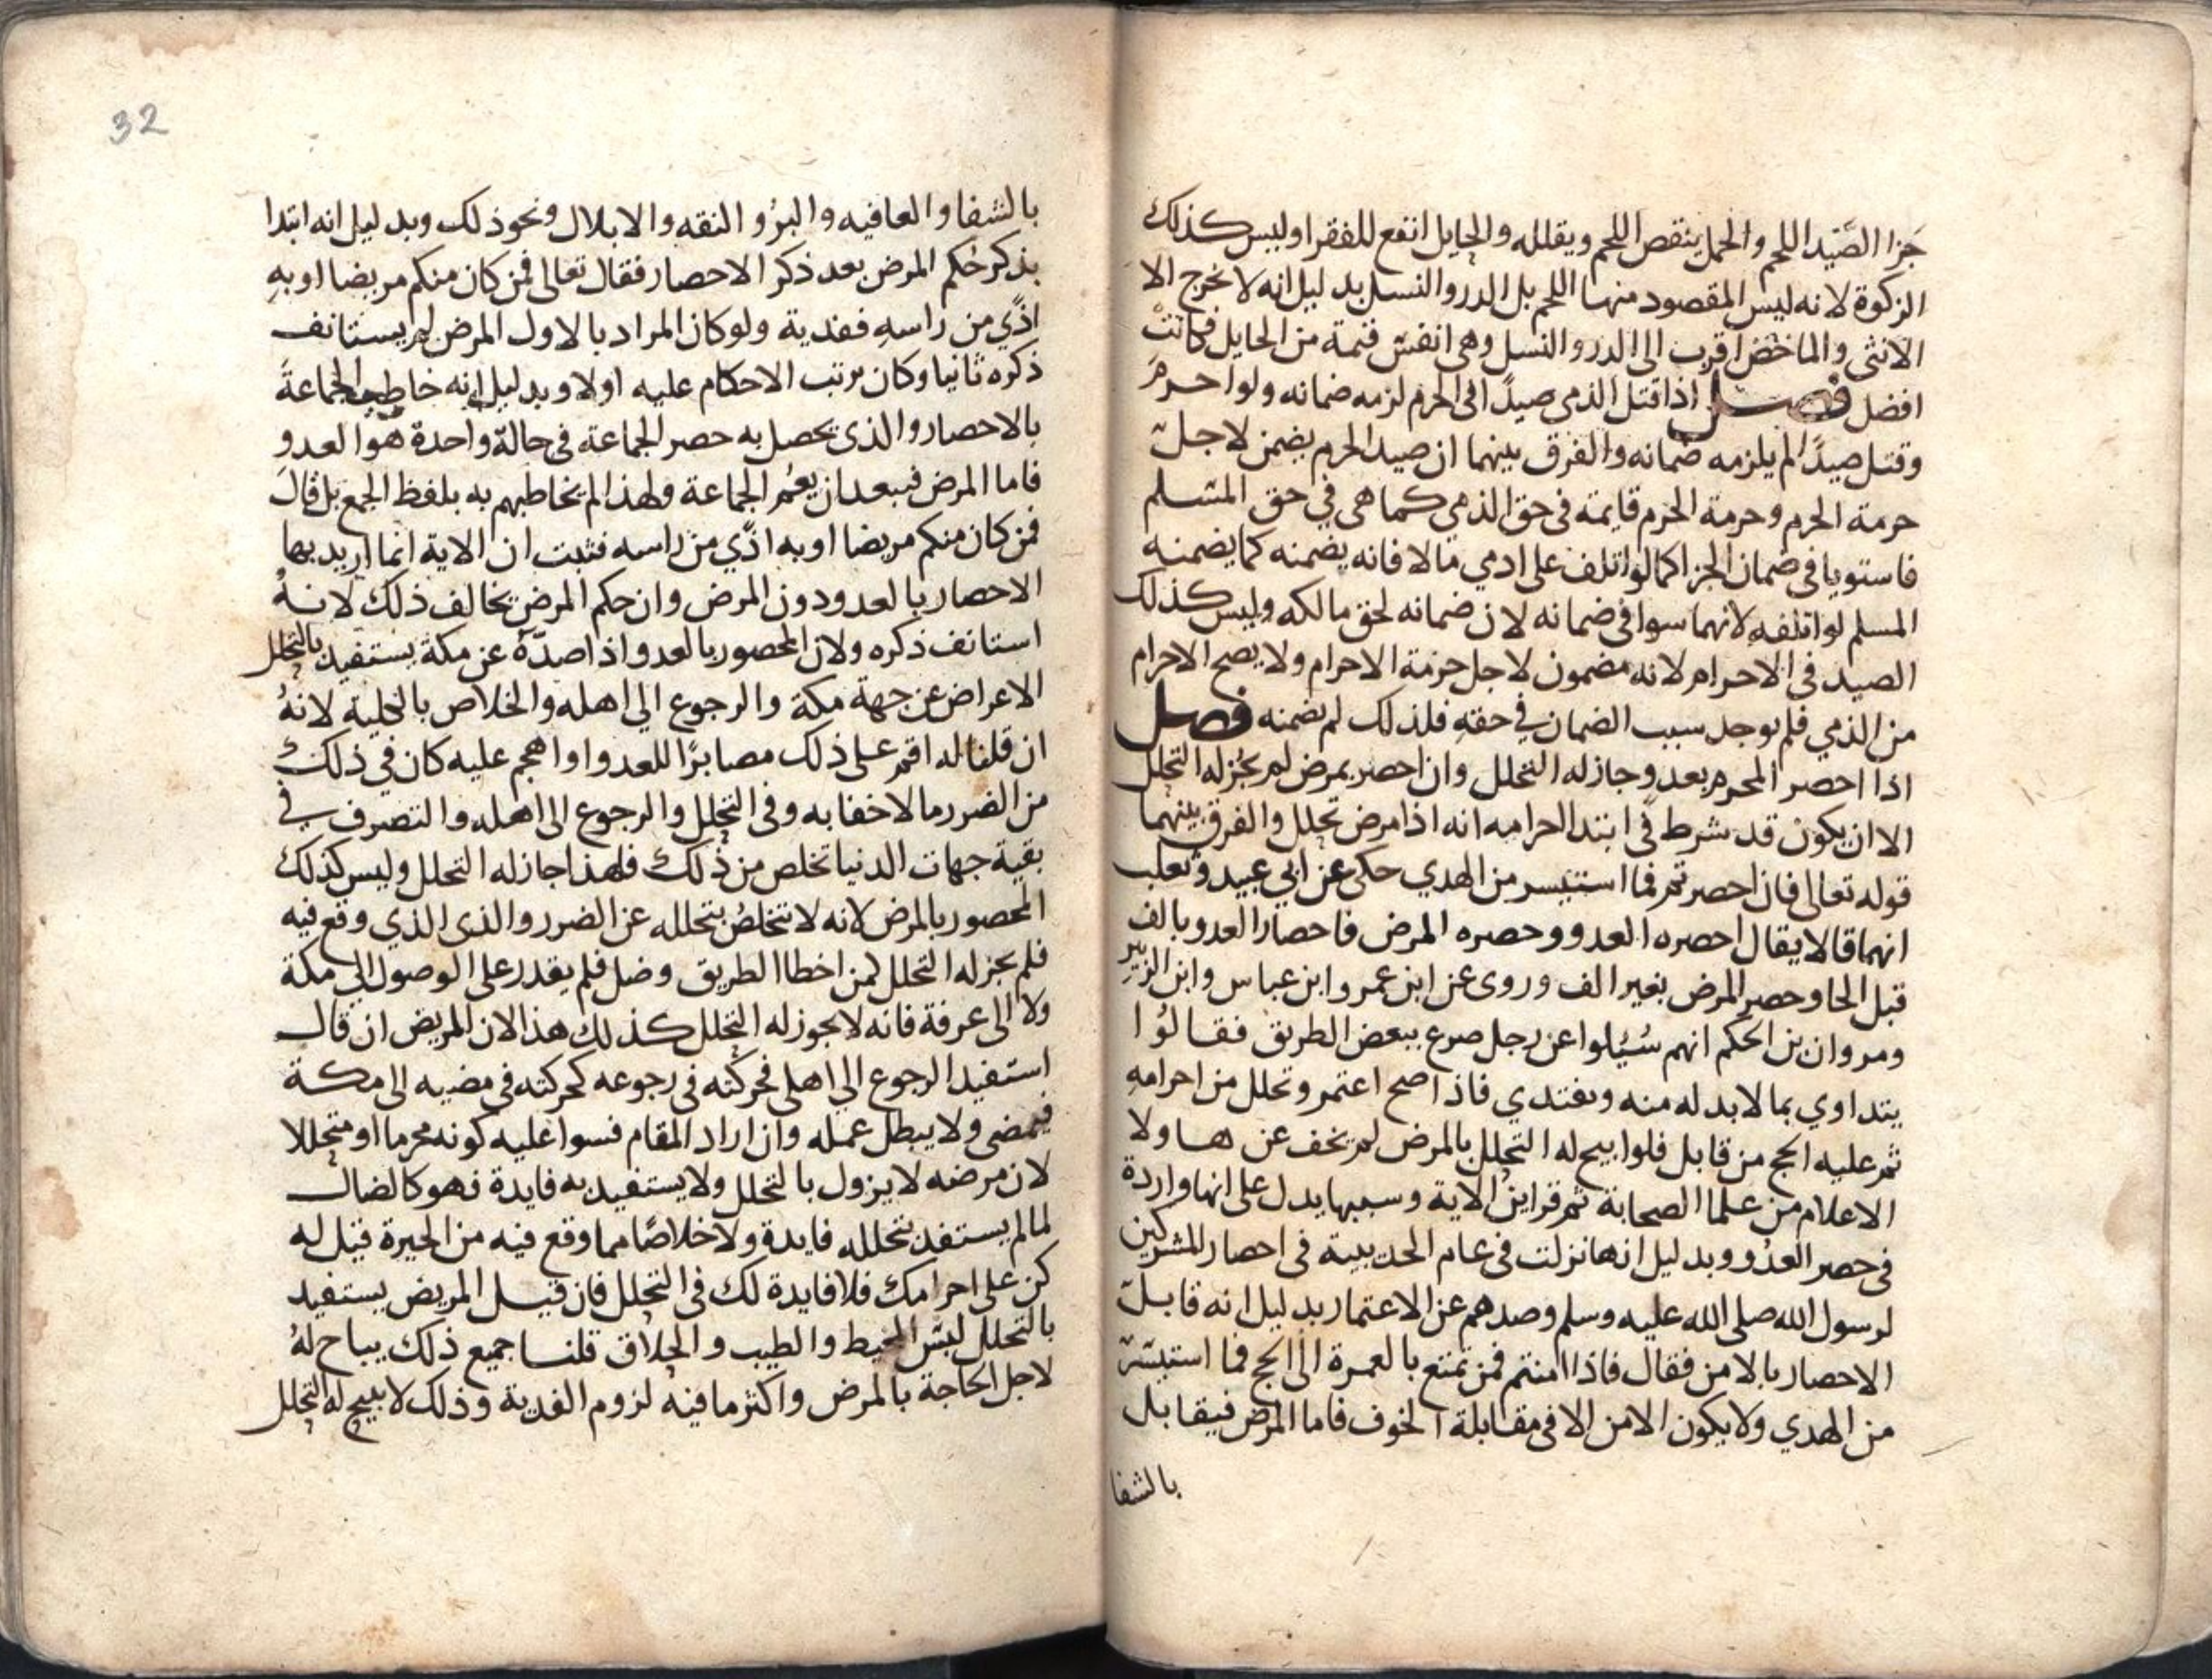 جزا الصَّيد اللحم والحمل ينقص اللحم ويقلله والحايل انفع للفقرا وليس كذلك
الزكوة لانه ليس المقصود منها اللحم بل الدر والنسل بدليل انه لا يخرج الا
الانثى والماخض اقرب الى الدر والنسل وهى انفس قيمة من الحايل فكانت
افضل فصل اذا قتل الذمى صيدًا فى الحرم لزمه ضمانه ولو احرم
وقتل صيدًا لم يلزمه ضمانه والفرق بينهما ان صيد الحرم يضمن لاجل
حرمة الحرم وحرمة الحرم قايمة فى حق الذمي كما هى في حق المسلم
فاستويا فى ضمان الجزا كما لو اتلف على ادمي مالا فانه يضمنه كما يضمنه
المسلم لو اتلفه لانهما سوا فى ضمانه لان ضمانه لحق مالكه وليس كذلك
الصيد فى الاحرام لانه مضمون لاجل حرمة الاحرام ولا يصح الاحرام
من الذمي فلم يوجد سبب الضمان في حقهِ فلذلك لم يضمنه فصل
اذا احصر المحرم بعدو جاز له التحلل وان احصر بمرض لم يجُز له التحلل
الا ان يكون قد شرط في ابتدا احرامه انه اذا مرض تحلل والفرق بينهما
قوله تعالى فان احصرتم فما استيسر من الهدي حكى عن ابي عبيد وثعلب
انهما قالا يقال احصره العدو وحصره المرض فاحصار العدو بالف
قبل الحا وحصر المرض بغير الف وروى عن ابن عمر وابن عباس وابن الزبير
ومروان بن الحكم انهم سُئيلوا عن رجل صرع ببعض الطريق فقالُوا
يتداوي بما لا بد له منه ويفتدي فاذا صح اعتمر وتحلل من احرامهِ
ثم عليه الحج من قابل فلو ابيح له التحلل بالمرض لم يخف عن ها ولا
الاعلام من علما الصحابة ثم قراين الاية وسببها يدل على انها واردة
فى حصر العدُو وبدليل انها نزلت فى عام الحديبية فى احصار المشركين
لرسول الله صلى الله عليه وسلم وصدهم عن الاعتمار بدليل انه قابل
الاحصار بالامن فقال فاذا امنتم فمن تمتع بالعمرة الى الحج فما استيسر
من الهدي ولا يكون الامن الا فى مقابلة الخوف فاما المرض فيقابل
بالشفا
32
بالشفا والعافيه والبرُو النقه والابلال ونحو ذلك وبدليل انه ابتدا
بذكر حُكم المرض بعد ذكر الاحصار فقال تعالى فمن كان منكم مريضا او بهِ
اذًي من راسهِ ففدية ولو كان المراد بالاول المرض لم يستانف
ذكره ثانيا وكان يرتب الاحكام عليه اولا وبدليل انه خاطب الجماعة
بالاحصار والذى يحصل به حصر الجماعة فى حالة واحدة هو العدو
فاما المرض فيبعد ان يعُم الجماعة ولهذا لم يخاطبهم به بلفظ الجمع بل قال
فمن كان منكم مريضا او به اذًي من راسه فثبت ان الاية انما اريد بها
الاحصار بالعدو دون المرض وان حكم المرض يخالف ذلك لانهُ
استانف ذكره ولان المحصور بالعدو اذا صدّهُ عن مكة يستفيد بالتحلل
الاعراض عن جهة مكة والرجوع الي اهله والخلاص بالتخلية لانهُ
ان قلنا له اقم على ذلك مصابرًا للعدو او اهجم عليه كان في ذلك
من الضرر ما لا خفا به وفى التحلل والرجوع الى اهله والتصرف في
بقية جهات الدنيا تخلص من ذلك فلهذا جاز له التحلل وليس كذلك
المحصور بالمرض لانه لا يتخلصُ بتحلله عن الضرر والذى الذي وقع فيه
فلم يجز له التحلل لمن اخطا الطريق وضل فلم يقدر على الوصول الي مكة
ولا الى عرفة فانه لا يجوز له التحلل كذلك هذا لان المريض ان قال
استفيد الرجوع الي اهلى فحركته فى رجوعه كحركته فى مضيه الى مكة
فيمضى ولا يبطل عمله وان اراد المقام فسوا عليه كونه محرما او متحللا
لان مرضه لا يزول بالتحلل ولا يستفيد به فايدة فهو كالضال
لما لم يستفد بتحلله فايدة ولا خلاصًا مما وقع فيه من الحيرة قيل له
كن على احرامك فلا فايدة لك فى التحلل فان قيل المريض يستفيد
بالتحلل لبس المخيط والطيب والحلاق قلنا جميع ذلك يباح لهُ
لاجل الحاجة بالمرض واكثر ما فيه لزوم الفدية وذلك لا يبيح له التحلل